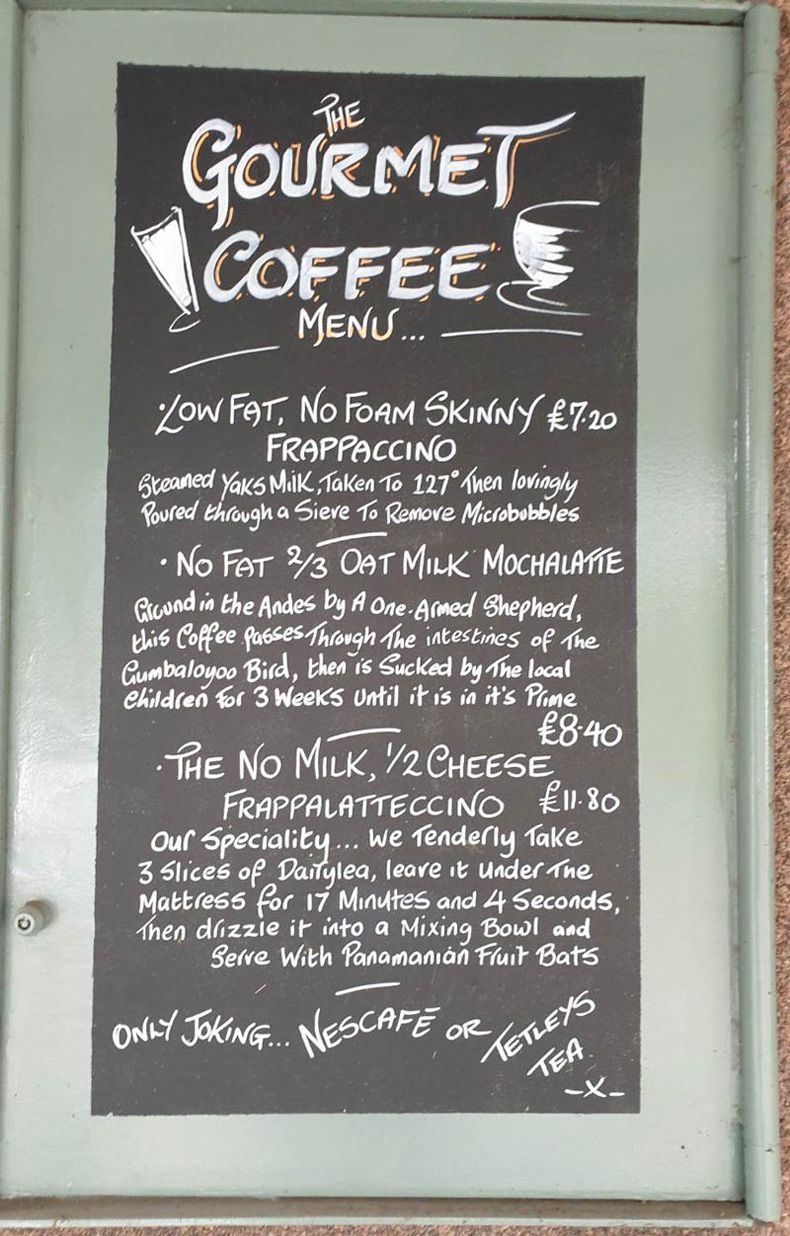 THE
GOURMET
COFFEE
MENU...
·LOW FAT, NO FOAM SKINNY £7.20
FRAPPACCINO
Steamed Yaks Milk, Taken To 127° Then lovingly
Poured through a Sieve To Remove Microbubbles
· NO FAT 2/3 OAT MILK MOCHALATTE
Ground in the Andes by A One-Armed Shepherd,
this Coffee Passes Through The intestines of The
Gumbaloyoo Bird, then is Sucked by The local
Children for 3 Weeks Until it is in it's Prime
£8.40
·THE NO MILK, 1/2 CHEESE
FRAPPALATTECCINO £11.80
Our Speciality... We Tenderly Take
3 Slices of Dairylea, leave it under The
Mattress for 17 Minutes and 4 Seconds,
Then drizzle it into a Mixing Bowl and
Serve With Panamanian Fruit Bats
ONLY JOKING... NESCAFE OR TETLEYS
TEA
-X-